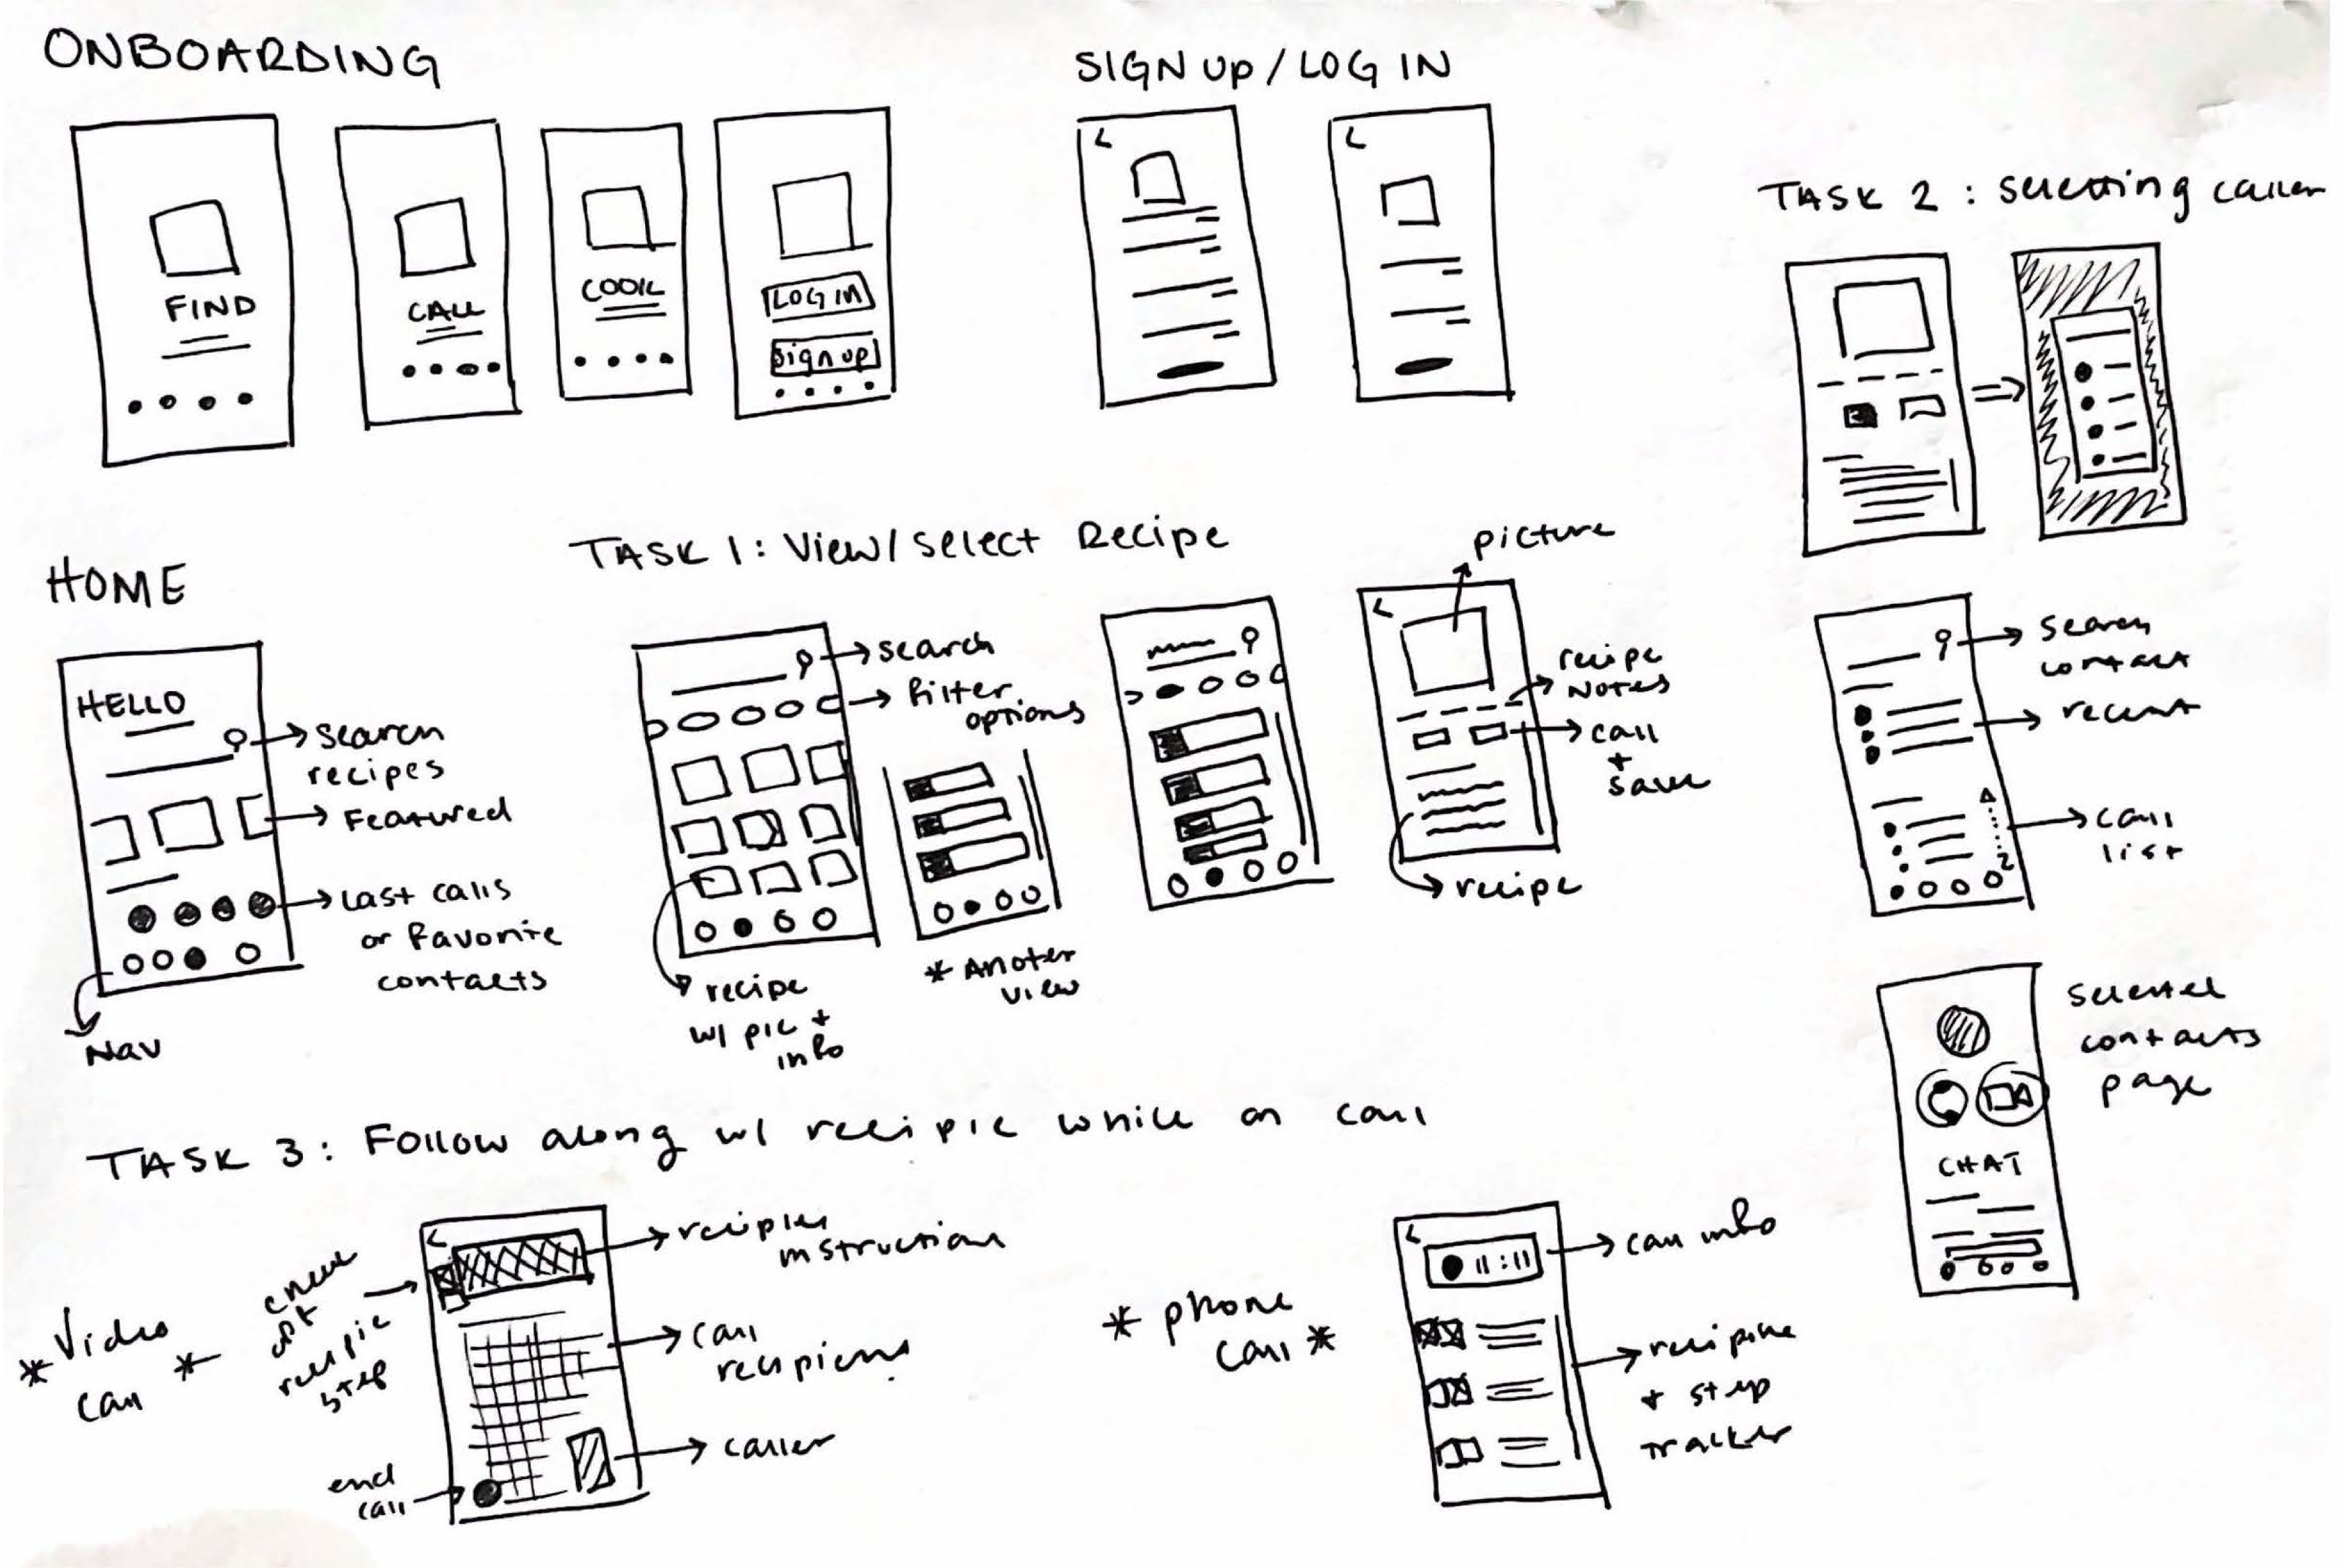 ONBOARDING
FIND
CALL
COOK
LOG IN
Sign up
SIGN UP / LOG IN
TASK 2 : Selecting caller
HOME
HELLO
search
recipes
Featured
Last calls
or favorite
contacts
Nav
TASK 1: View/select Recipe
search
filter
options
recipe
w/ pic +
info
* Anoter
view
picture
recipe
Notes
call
+
save
recipe
search
contact
recent
call
list
Selected
contacts
page
CHAT
TASK 3: Follow along w/ recipie while on call
* Video
call *
check
off
recipie
step
end
call
instruction
call
caller
* phone
call *
11:11
call info
+ step
tracker